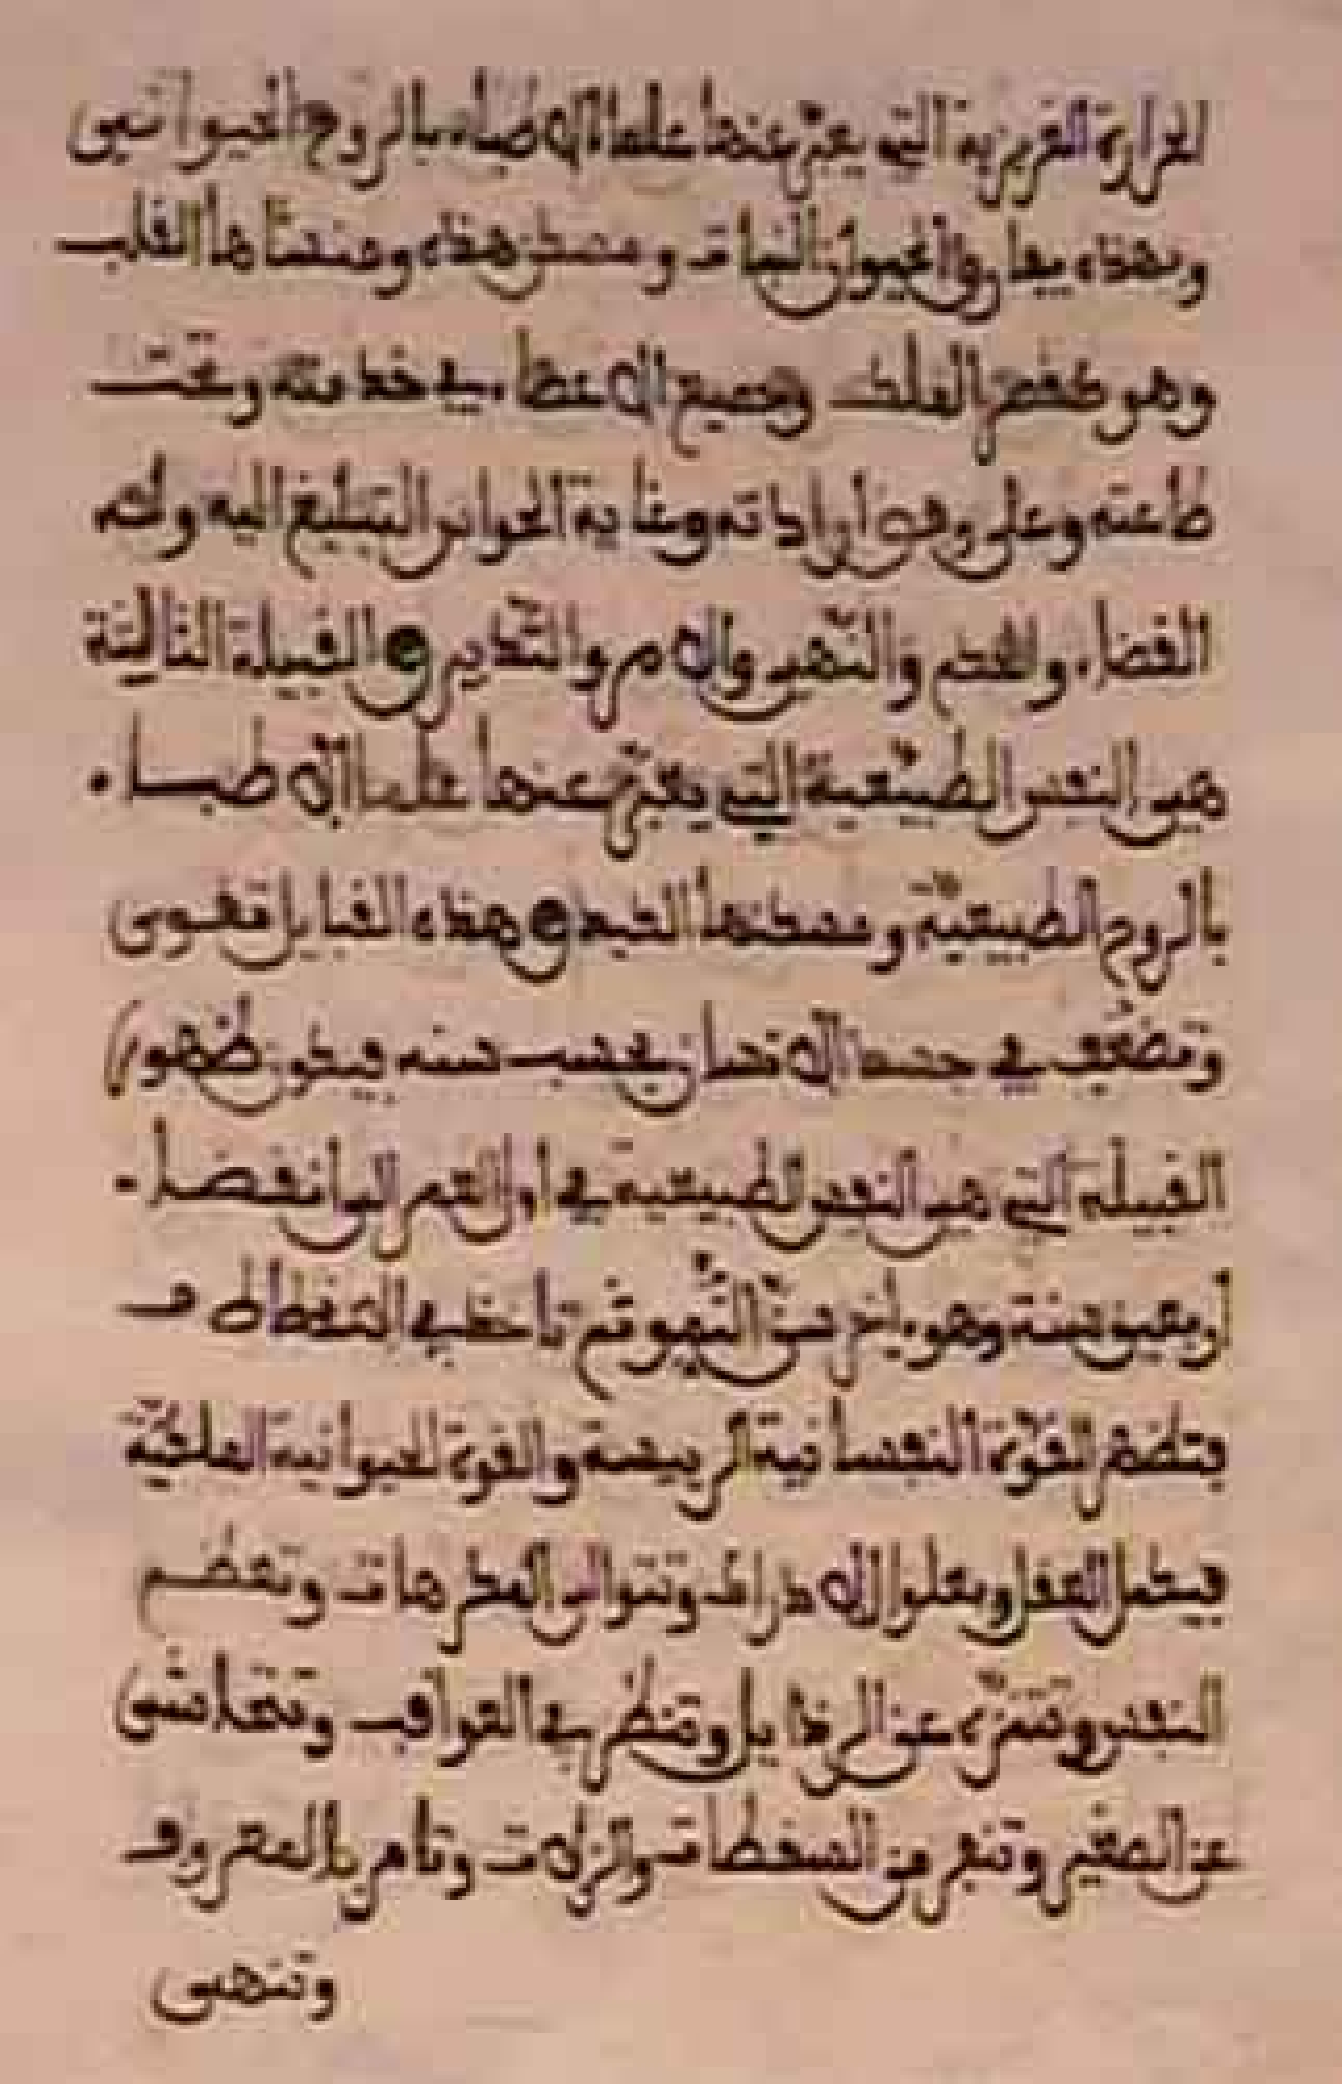 الحرارة الغريزية التي يعبر عنها علماء الاطباء بالروح الحيواني
وبهذه يفارق الحيوان النبات ومعدن هذه ومنشاها القلب
وهو كفص الملك وجميع الاعضاء في خدمته وتحت
طاعته وعلى وفق اراداته وغاية الحواس التبليغ اليه وله
القضاء والحكم والنهي والامر والتدبير والقبيلة الثالثة
هي النفس الطبيعية التي يعبر عنها علماء الاطباء
بالروح الطبيعية ومعدنها الكبد وهذه القبايل تقوى
وتضعف في جسد الانسان بحسب سنه فيكون ظهور
القبيلة التي هي النفس الطبيعية في اول العمر الى انقضاء
اربعين سنة وهو ءاخر سن النمو ثم تاخذ في الانحطاط و
فتظهر القوة النفسانية الرييسة والقوة الحيوانية الملكية
فيكمل العقل ويعلوا الادراك وتتوالى المكرمات وتعظم
النفس وتتنزه عن الرذايل وتنظر في العواقب وتتحاشى
عن الصغير وتنفر من السخطات والزلات وتامر بالمعروف
وتنهى